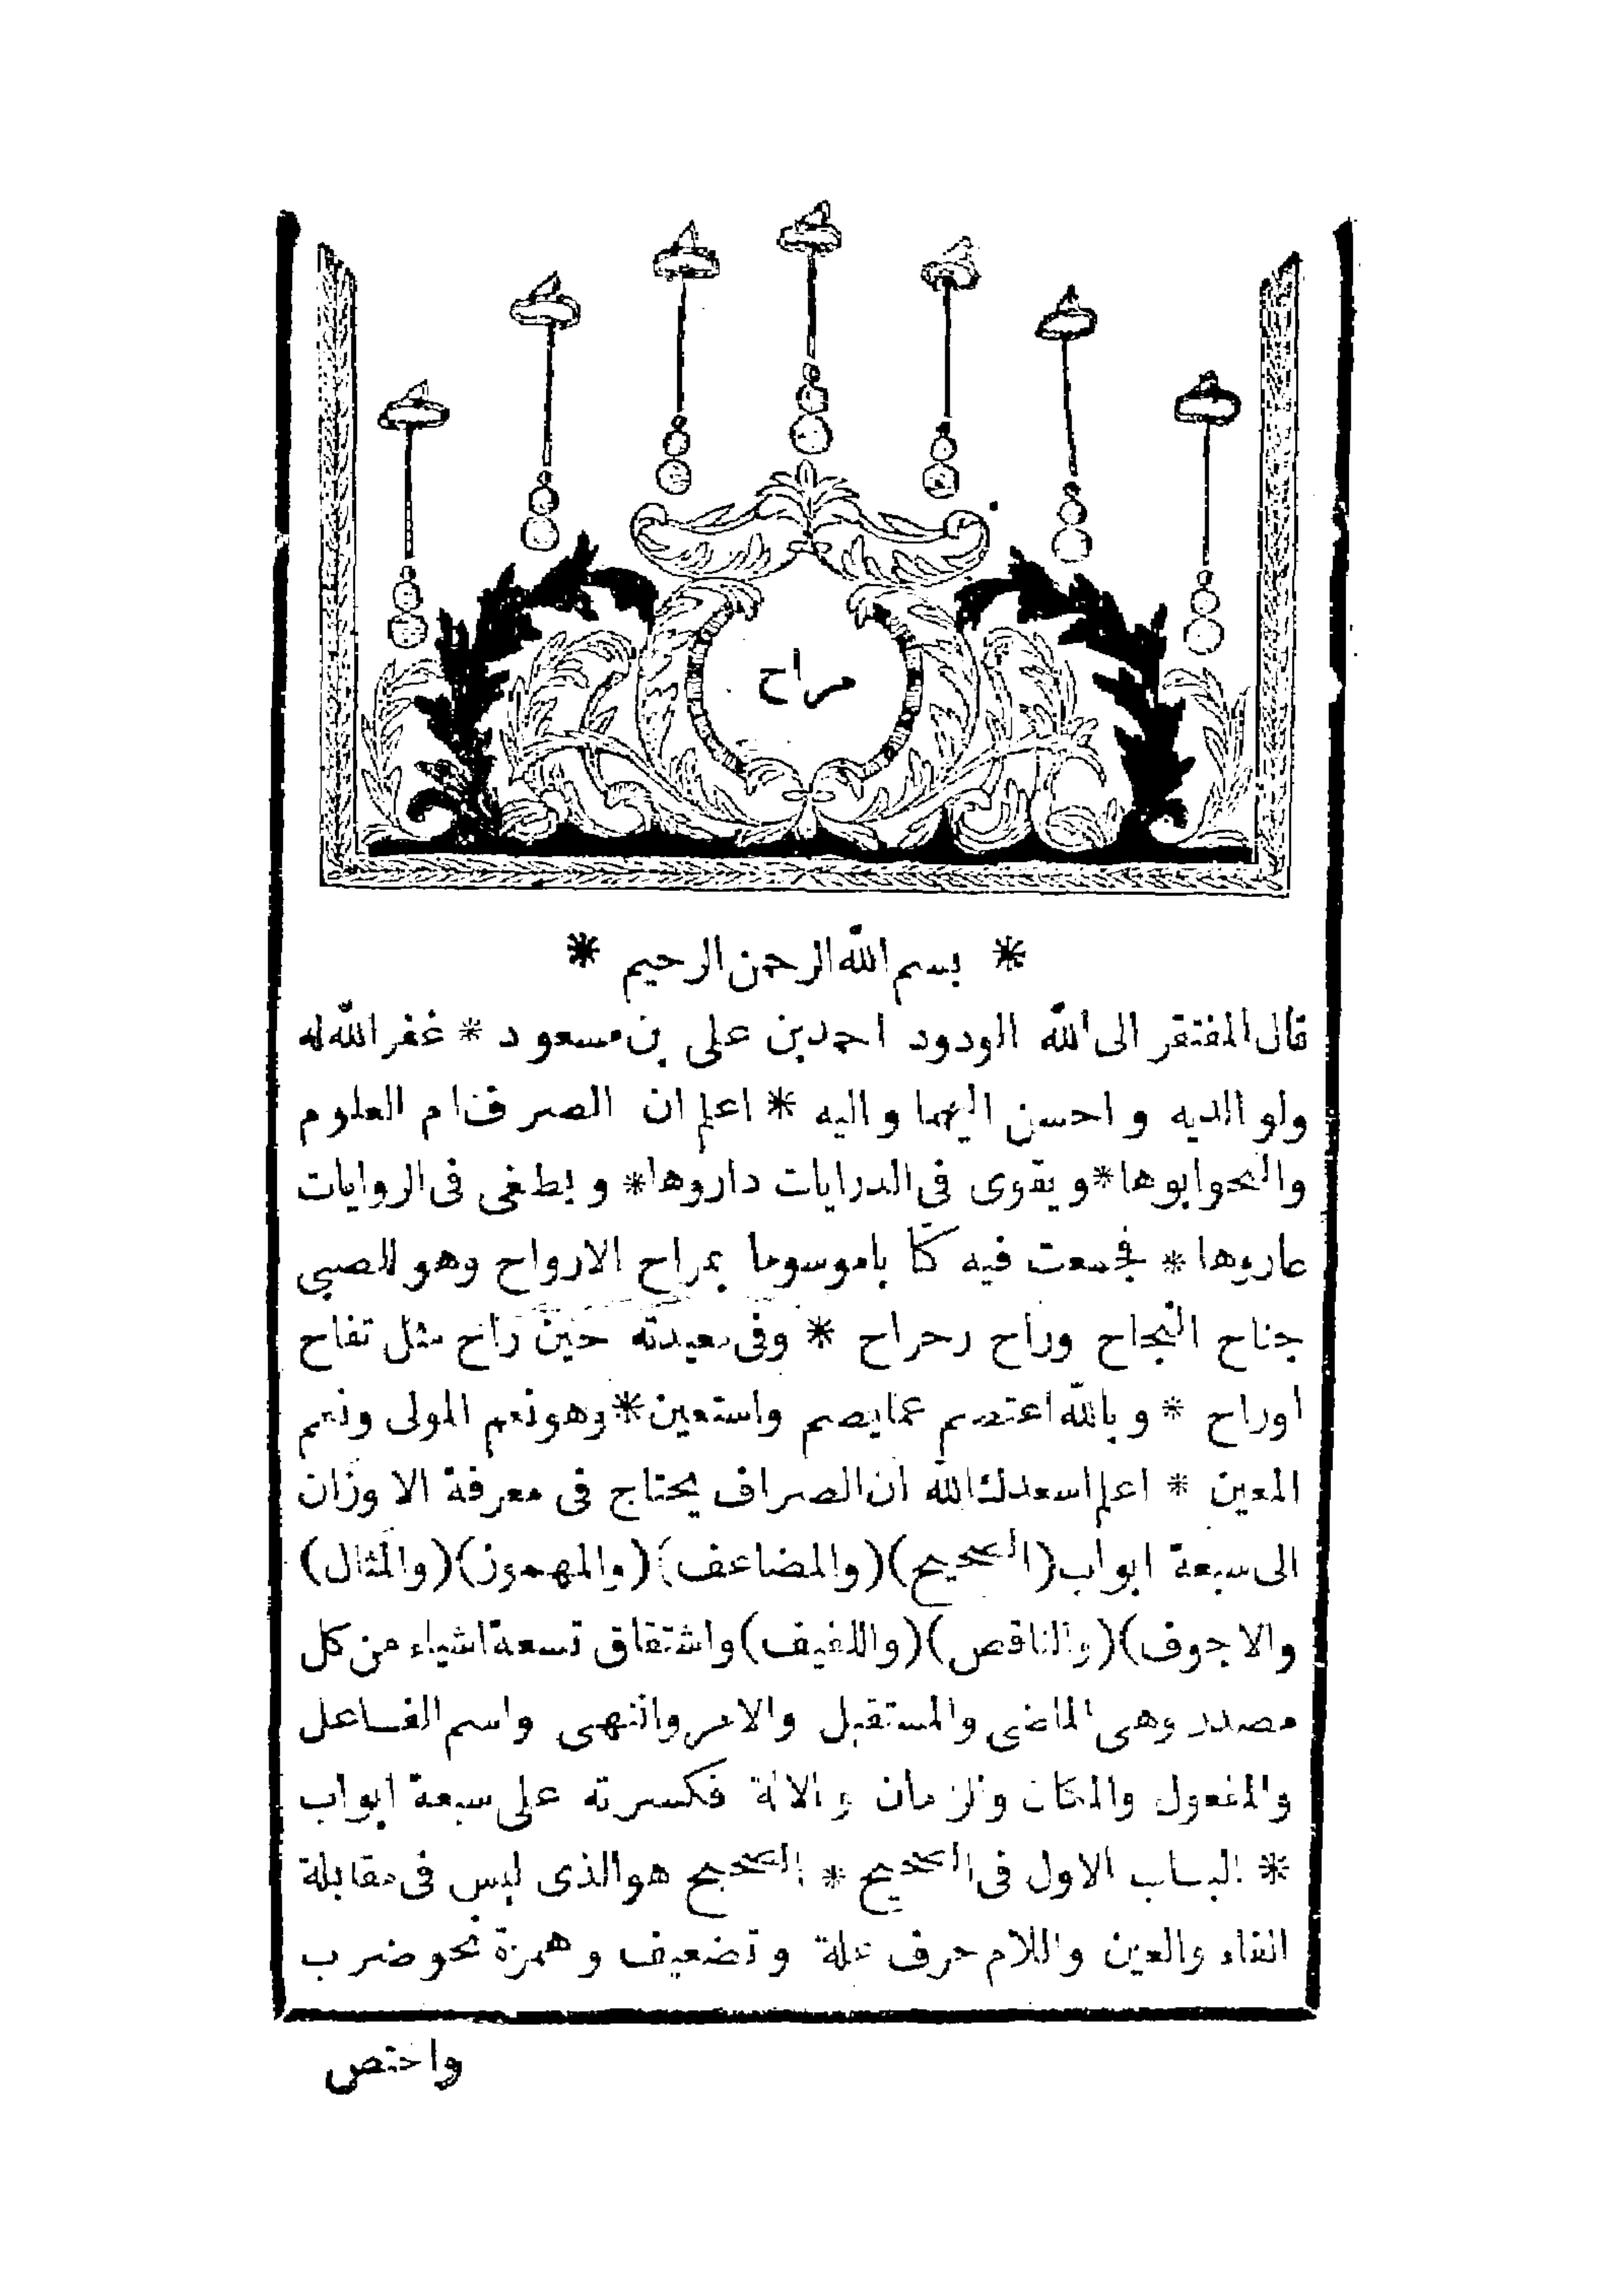 مراح
* بسم الله الرحمن الرحيم *
قال المفتقر الى الله الودود احمد بن على بن مسعود * غفر الله له
ولوالديه واحسن اليهما واليه * اعلم ان الصرف ام العلوم
والنحو ابوها * ويقوى فى الدرايات داروها * ويطغى فى الروايات
عاروها * فجمعت فيه كتابا موسوما بمراح الارواح وهو للصبى
جناح النجاح وراح رحراح * وفى معيدته حين راح مثل تفاح
اوراح * وبالله اعتصم عما يصم واستعين * وهو نعم المولى ونعم
المعين * اعلم اسعدك الله ان الصراف يحتاج فى معرفة الاوزان
الى سبعة ابواب (الصحيح) (والمضاعف) (والمهموز) (والمثال)
والاجوف) (والناقص) (واللفيف) واشتقاق تسعة اشياء من كل
مصدر وهى الماضى والمستقبل والامر والنهى واسم الفاعل
والمفعول والمكان والزمان والالة فكسرته على سبعة ابواب
* الباب الاول فى الصحيح * الصحيح هو الذى ليس فى مقابلة
الفاء والعين واللام حرف علة وتضعيف وهمزة نحو ضرب
واختص